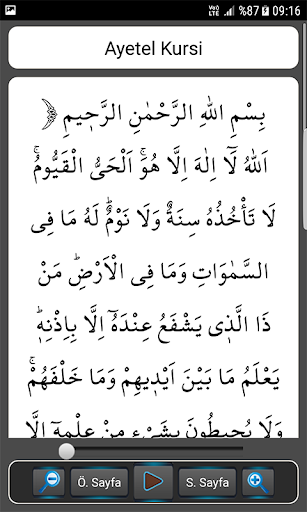 VoLTE %87 09:16
Ayetel Kursi
بِسْمِ اللهِ الرَّحْمٰنِ الرَّحٖيمِ
اَللهُ لَآ اِلٰهَ اِلَّا هُوَۚ اَلْحَىُّ الْقَيُّومُۚ
لَا تَأْخُذُهُ سِنَةٌ وَلَا نَوْمٌؕ لَهُ مَا فِى
السَّمٰوَاتِ وَمَا فِى الْاَرْضِؕ مَنْ
ذَا الَّذٖى يَشْفَعُ عِنْدَهُٓ اِلَّا بِاِذْنِهٖؕ
يَعْلَمُ مَا بَيْنَ اَيْدٖيهِمْ وَمَا خَلْفَهُمْۚ
وَلَا يُحٖيطُونَ بِشَىْءٍ مِنْ عِلْمِهٖٓ اِلَّا
Ö. Sayfa S. Sayfa